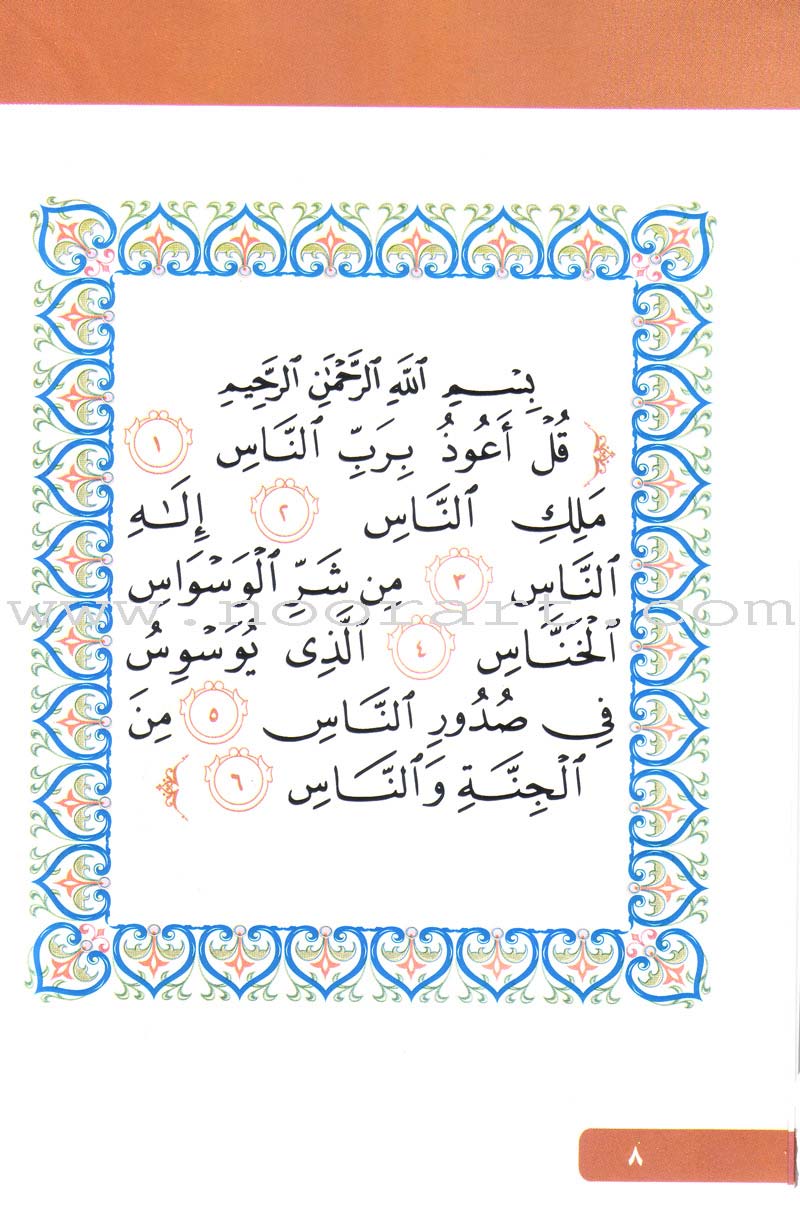 بِسْمِ ٱللَّهِ ٱلرَّحْمَٰنِ ٱلرَّحِيمِ
قُلْ أَعُوذُ بِرَبِّ ٱلنَّاسِ ١
مَلِكِ ٱلنَّاسِ ٢ إِلَـٰهِ
ٱلنَّاسِ ٣ مِن شَرِّ ٱلْوَسْوَاسِ
www.noorart.com
ٱلْخَنَّاسِ ٤ ٱلَّذِى يُوَسْوِسُ
فِى صُدُورِ ٱلنَّاسِ ٥ مِنَ
ٱلْجِنَّةِ وَٱلنَّاسِ ٦
٨